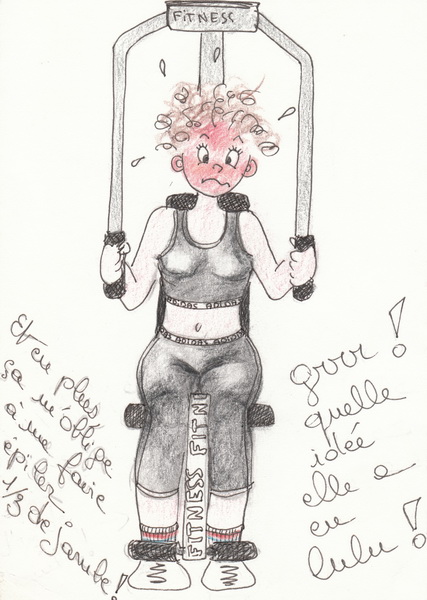 FiTNESS
ADIDAS ADIDAS
ADIDAS ADIDAS
FITNESS FITN
Et en plus
ça m'oblige
à me faire
épiler
1/3 de jambe !
grrr !
quelle
idée
elle a
eu
lulu !